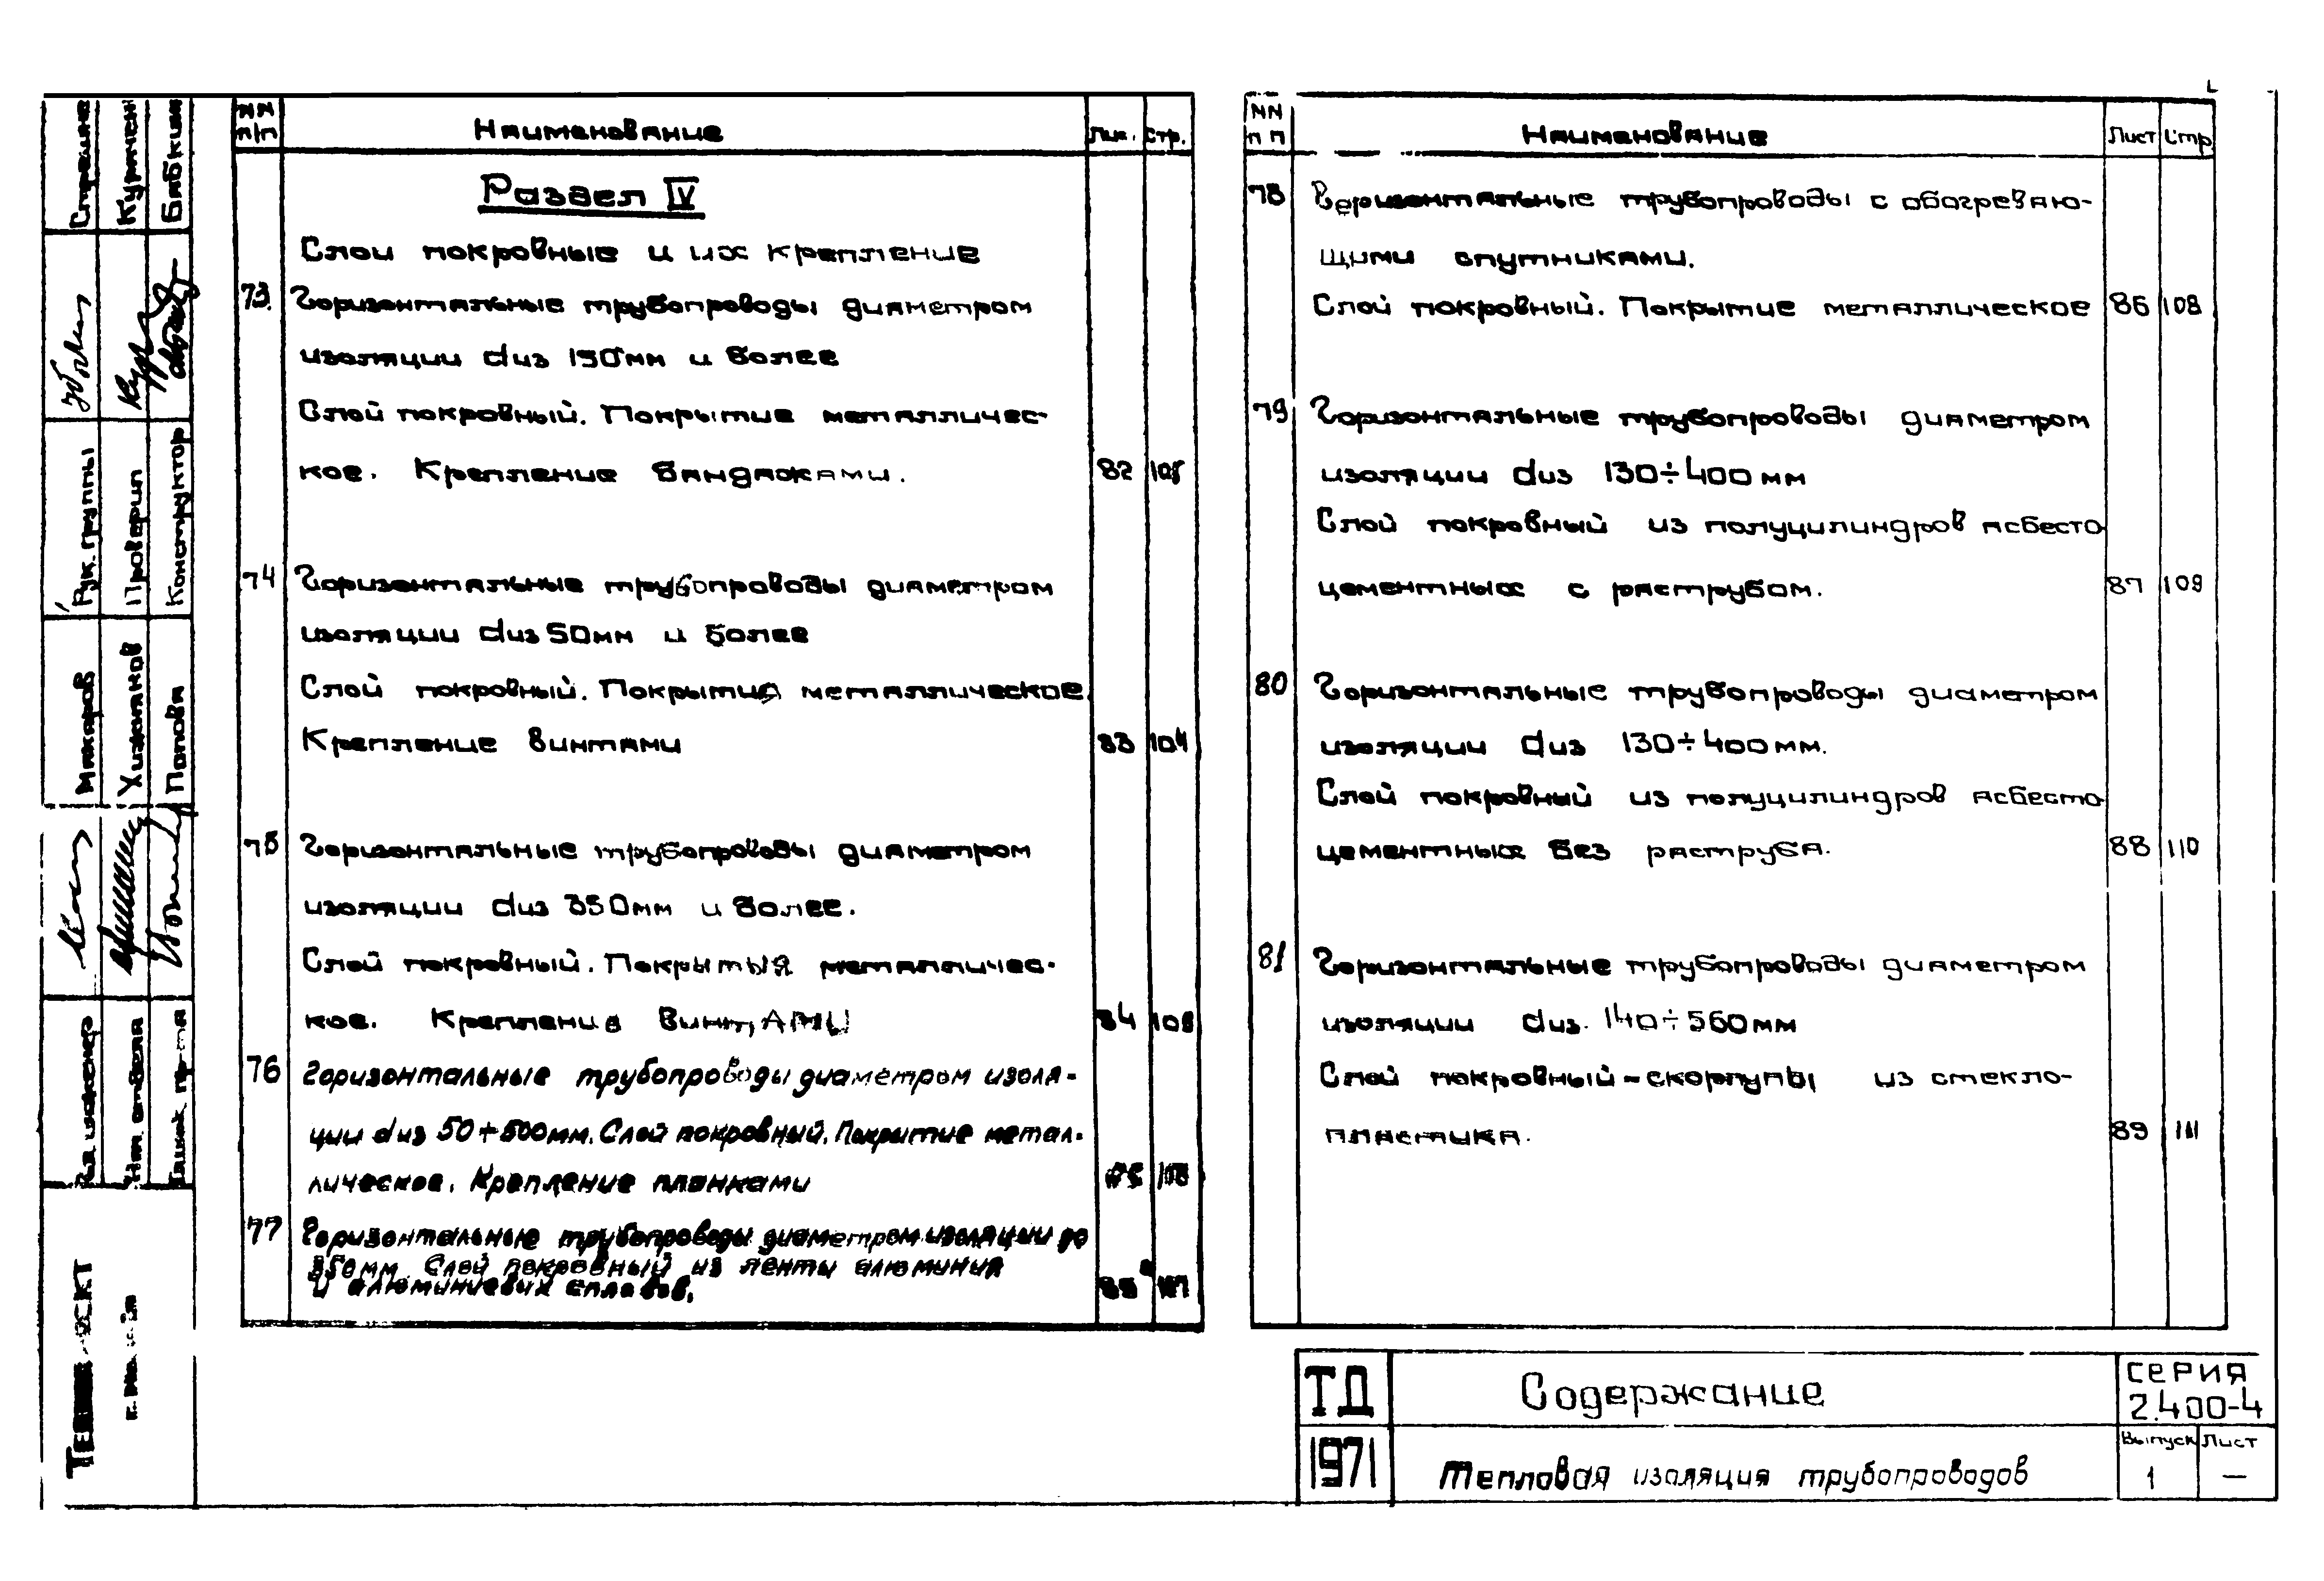 NN п/п Наименование Лис. Стр.
Раздел IV
Слои покровные и их крепление
73. Горизонтальные трубопроводы диаметром
изоляции dиз 150мм и более
Слой покровный. Покрытие металличес-
кое. Крепление бандажами. 82
74 Горизонтальные трубопроводы диаметром
изоляции dиз 50мм и более
Слой покровный. Покрытие металлическое.
Крепление винтами 83 104
75 Горизонтальные трубопроводы диаметром
изоляции dиз 350мм и более.
Слой покровный. Покрытия металличес-
кое. Крепление винтами 84
76 Горизонтальные трубопроводы диаметром изоля-
ции dиз 50÷500мм. Слой покровный. Покрытие метал-
лическое. Крепление планками
77 Горизонтальные трубопроводы диаметром изоляции до
350мм Слой покровный из ленты алюминия
и алюминиевих сплавов.
NN п п Наименование Лист Стр
78 Горизонтальные трубопроводы с обогреваю-
щими спутниками.
Слой покровный. Покрытие металлическое 86 108
79 Горизонтальные трубопроводы диаметром
изоляции dиз 130÷400мм
Слой покровный из полуцилиндров асбесто
цементных с раструбом. 87 109
80 Горизонтальные трубопроводы диаметром
изоляции dиз 130÷400мм.
Слой покровный из полуцилиндров асбесто
цементных без раструба. 88 110
81 Горизонтальные трубопроводы диаметром
изоляции dиз. 140÷560мм
Слой покровный-скорлупы из стекло-
пластика. 89 111
ТД
1971
Содержание
Тепловая изоляция трубопроводов
серия
2.400-4
Выпуск Лист
1 —
Рук. группы
Проверил
Конструктор
Макаров
Хижняков
Попова